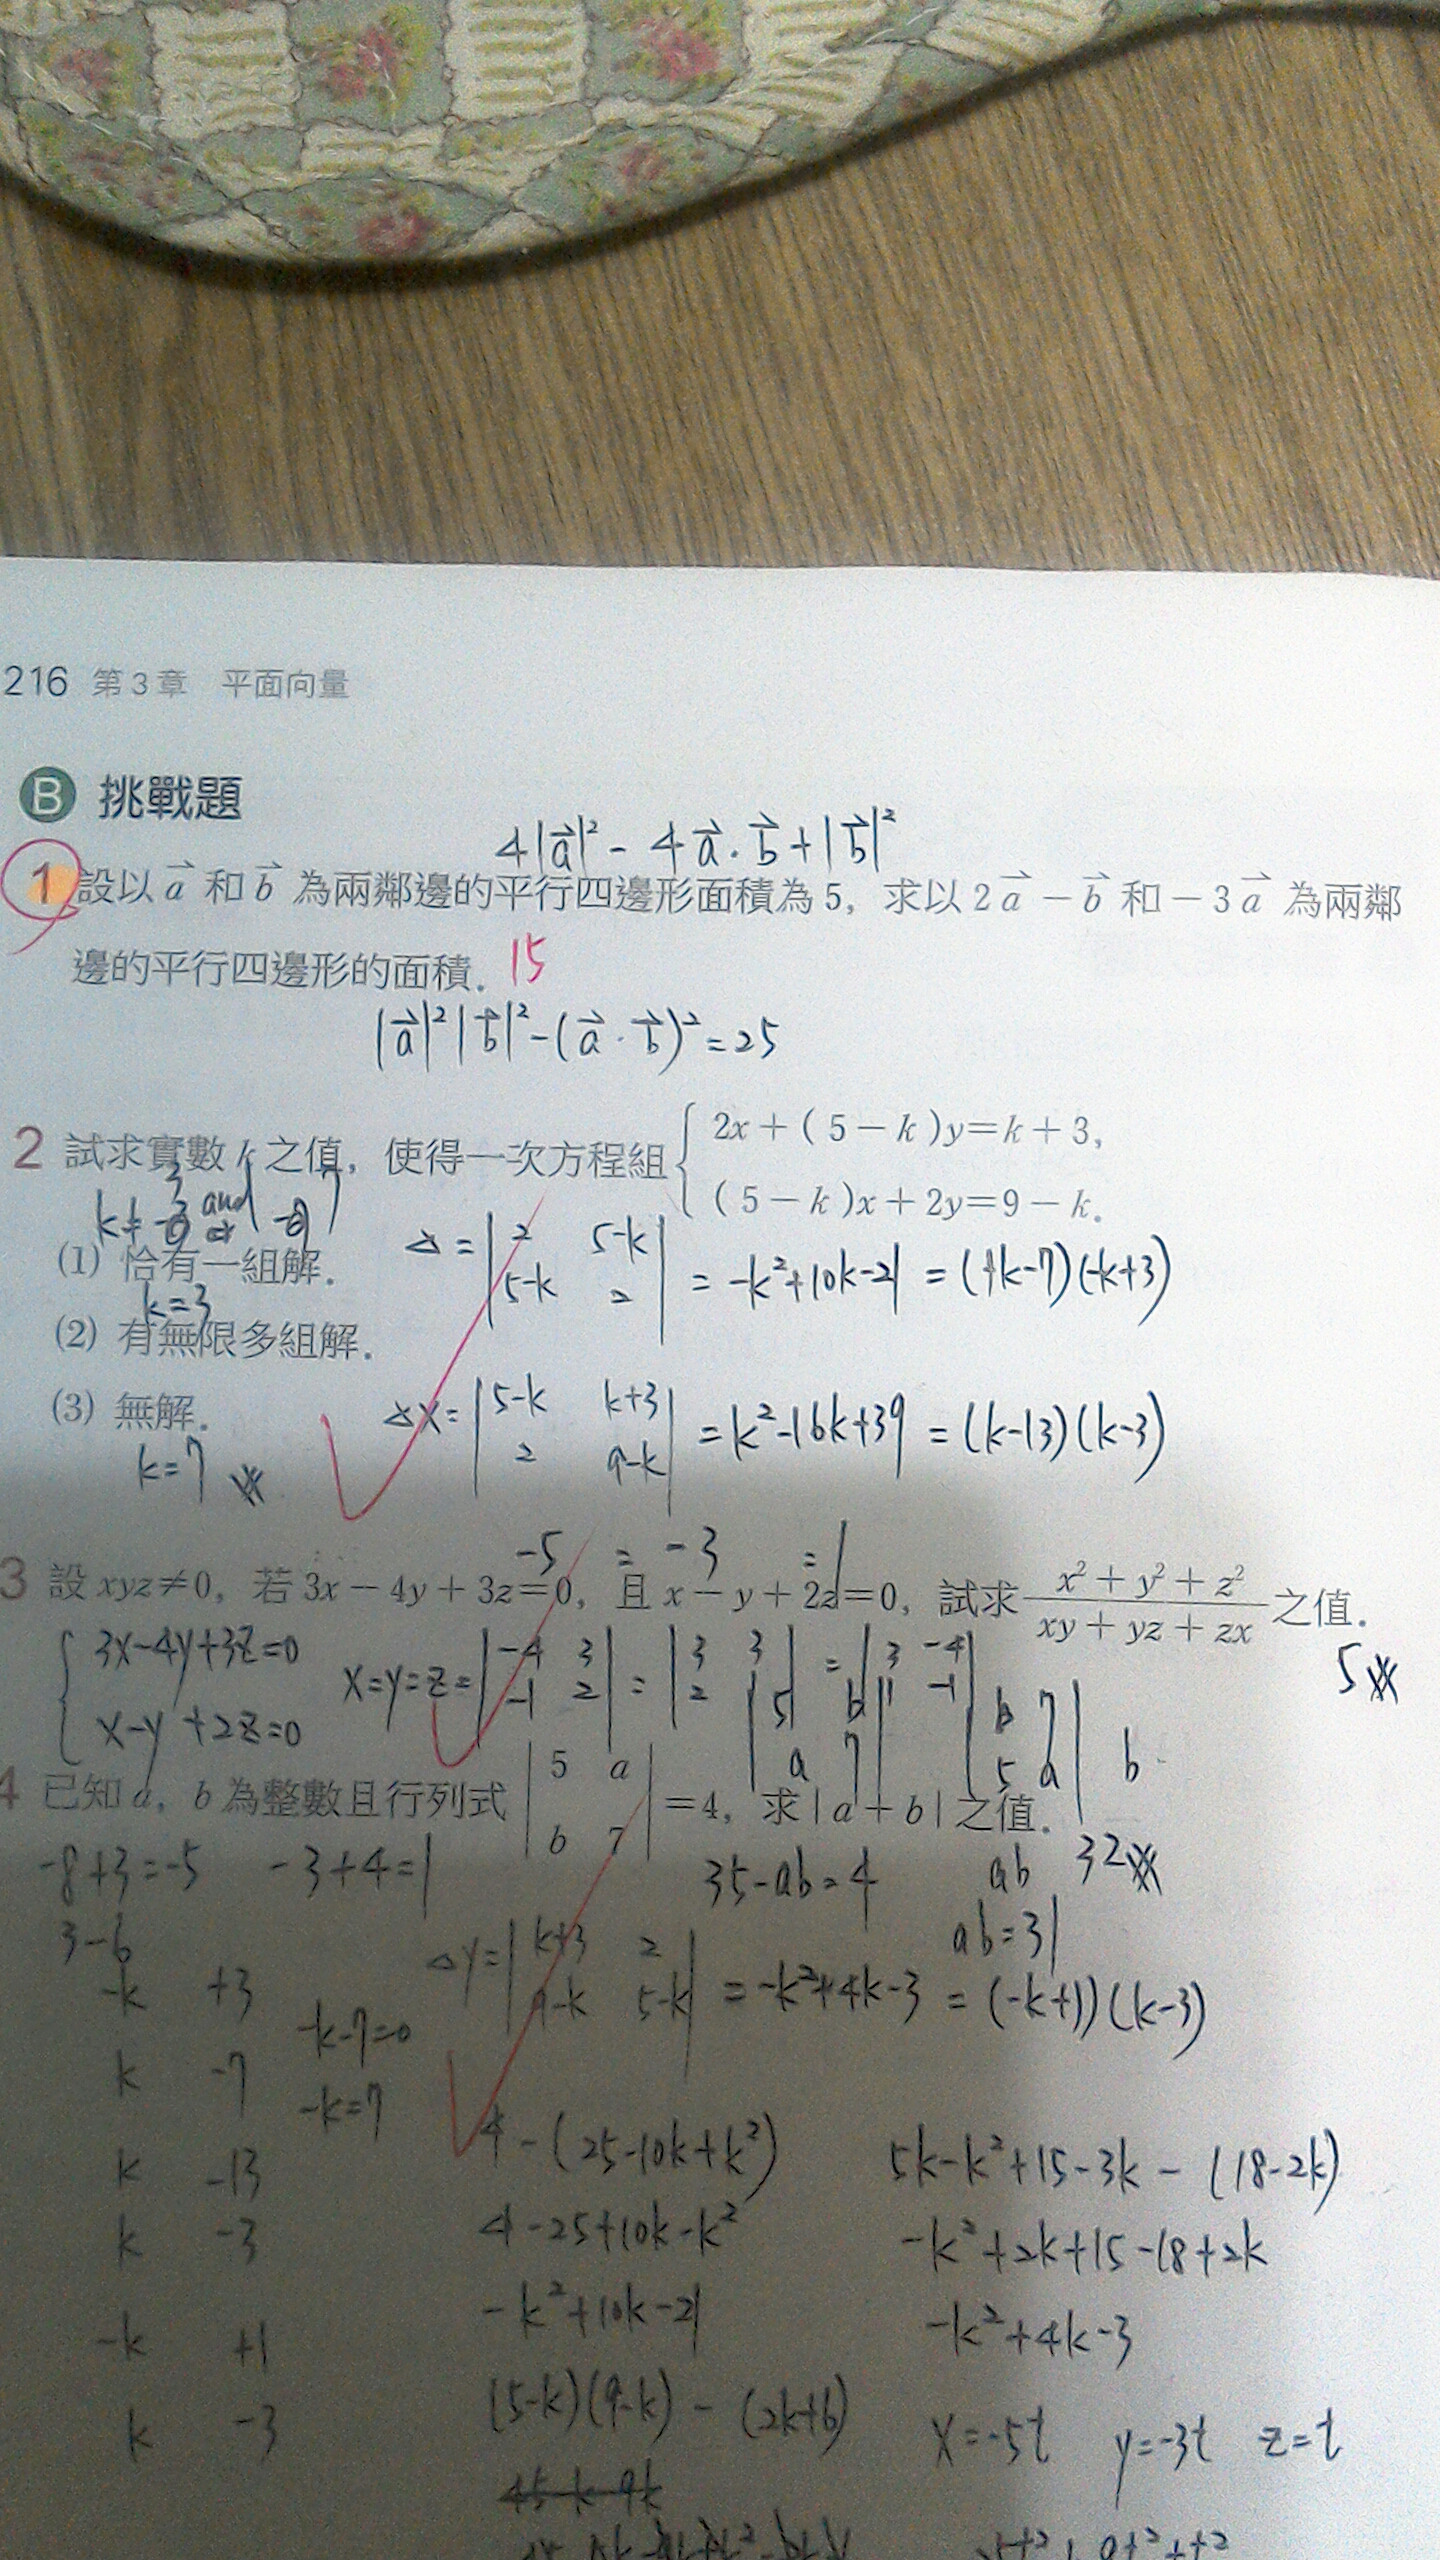 216 第3章 平面向量
B 挑戰題
4|a⃗|² - 4a⃗·b⃗ + |b⃗|²
1 設以 a⃗ 和 b⃗ 為兩鄰邊的平行四邊形面積為 5, 求以 2a⃗ - b⃗ 和 -3a⃗ 為兩鄰
邊的平行四邊形的面積. 15
|a⃗|²|b⃗|² - (a⃗·b⃗)² = 25
2 試求實數 k 之值, 使得一次方程組 { 2x + (5 - k)y = k + 3,
(5 - k)x + 2y = 9 - k.
k ≠ 3 and 7
(1) 恰有一組解.
△ = | 2 5-k | = -k²+10k-21 = (k-7)(-k+3)
| 5-k 2 |
k=3
(2) 有無限多組解.
(3) 無解.
△x = | 5-k k+3 | = k²-16k+39 = (k-13)(k-3)
| 2 9-k |
k=7
-5 = -3 = 1
3 設 xyz≠0, 若 3x - 4y + 3z = 0, 且 x - y + 2z = 0, 試求 (x² + y² + z²)/(xy + yz + zx) 之值.
5
{ 3x-4y+3z=0
x-y+2z=0
x=y=z= | -4 3 | = | 3 3 | = | 3 -4 |
| -1 2 | | 2 | | 1 -1 |
| 5 b | | b 7 | b
| a 7 | | 5 a |
4 已知 a, b 為整數且行列式 | 5 a | = 4, 求 | a + b | 之值.
| b 7 |
32
-8+3=-5 -3+4=1
35-ab=4 ab
3-6
ab=31
△y = | k+3 2 | = -k²+4k-3 = (-k+1)(k-3)
| 9-k 5-k |
-k +3
k -7
-k-7=0
-k=7
k -13
k -3
-k +1
k -3
4-(25-10k+k²)
4-25+10k-k²
-k²+10k-21
(5-k)(9-k) - (2k+6)
5k-k²+15-3k - (18-2k)
-k²+2k+15-18+2k
-k²+4k-3
x=-5t y=-3t z=t